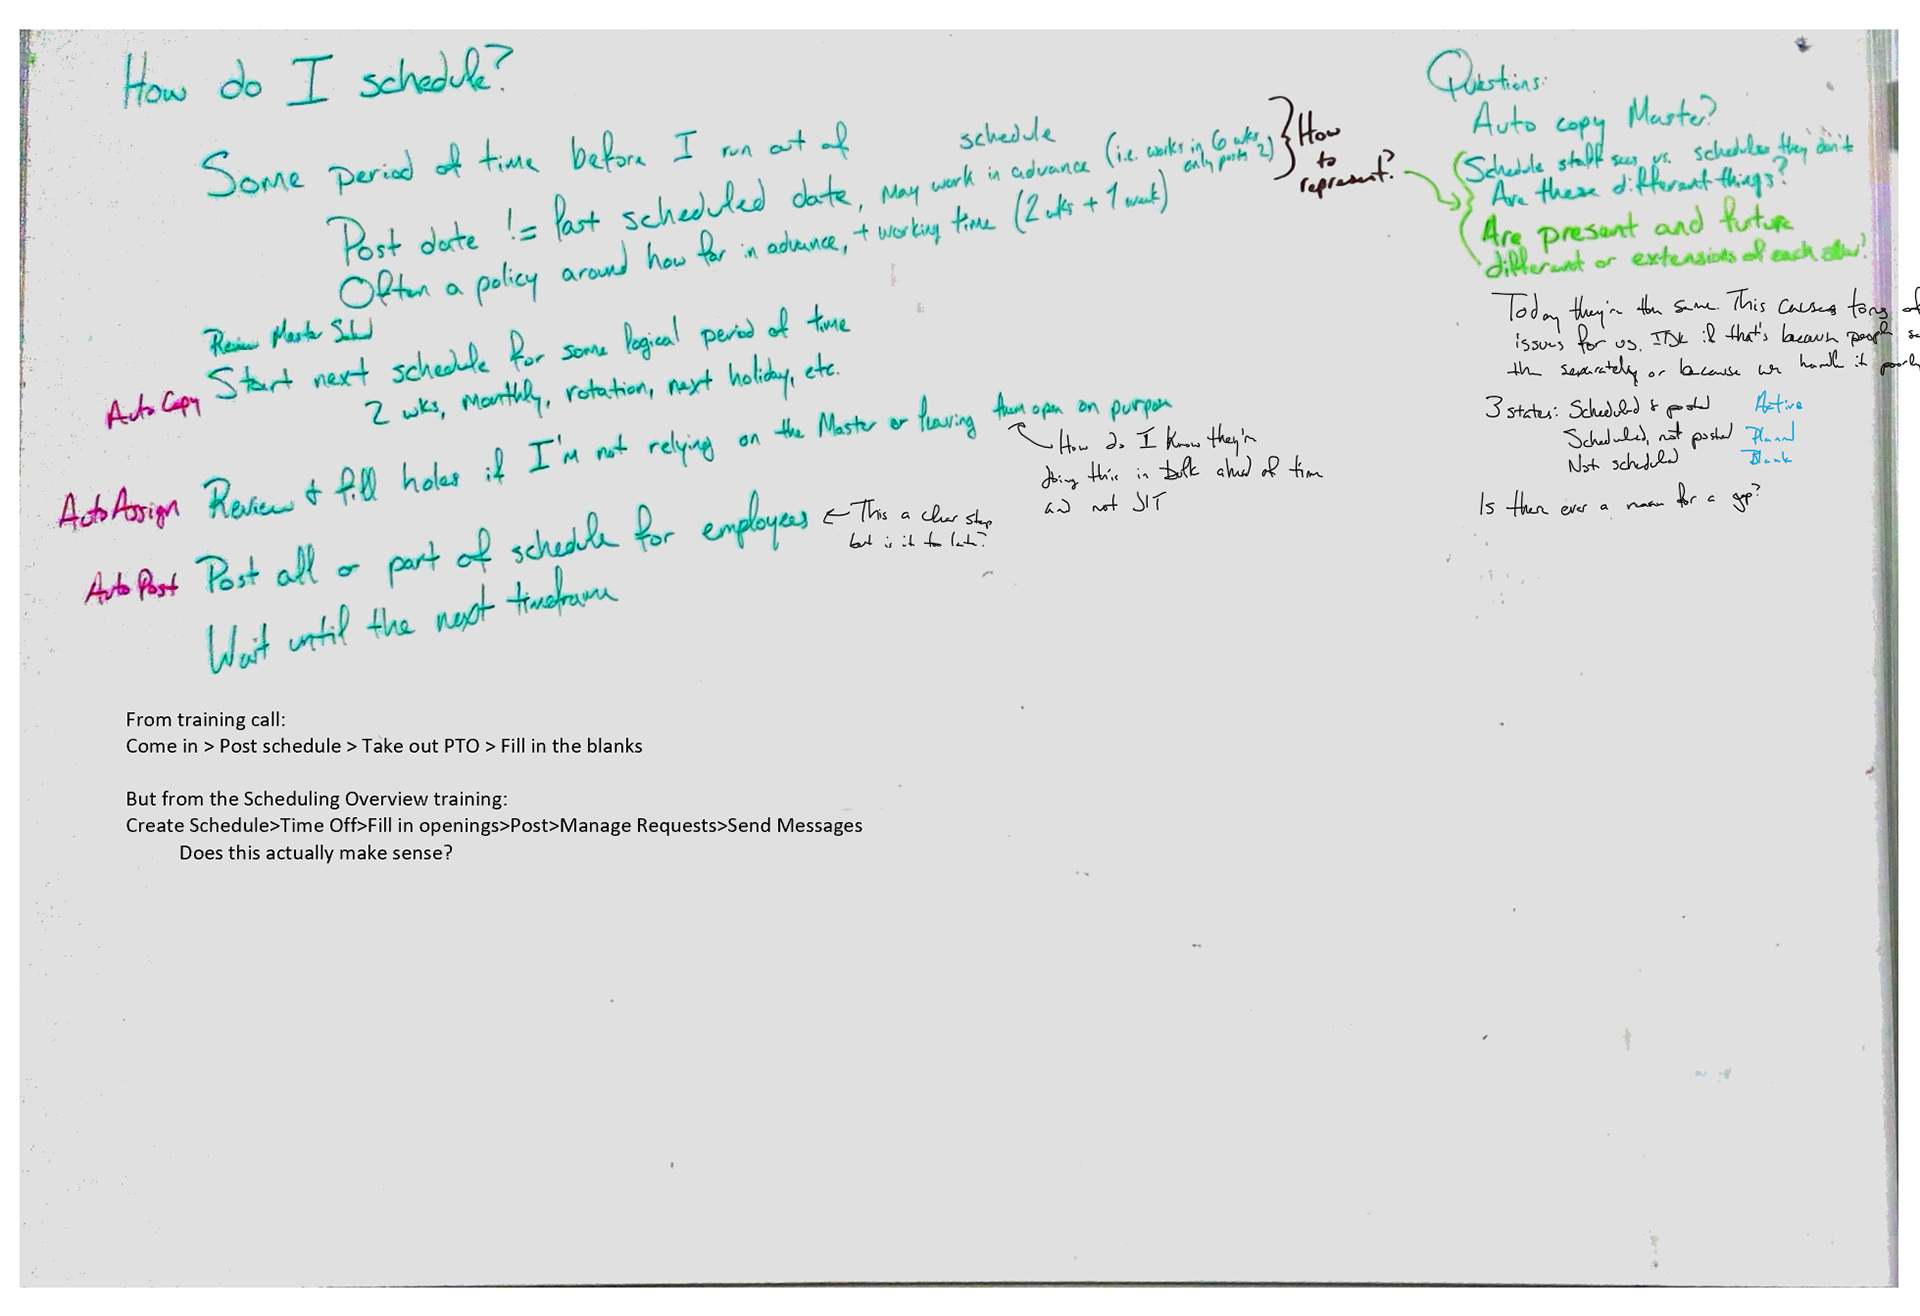 How do I schedule?
Some period of time before I run out of schedule
Post date != last scheduled date, may work in advance (i.e. works in 6 wks, only posts 2)
Often a policy around how far in advance, + working time (2 wks + 1 week)
How
to
represent?
Review Master Sched
Auto Copy
Start next schedule for some logical period of time
2 wks, monthly, rotation, next holiday, etc.
Auto Assign
Review & fill holes if I'm not relying on the Master or leaving them open on purpose
How do I know they're
doing this in bulk ahead of time
and not JIT
Auto Post
Post all or part of schedule for employees
This a clear step
but is it too late?
Wait until the next timeframe
From training call:
Come in > Post schedule > Take out PTO > Fill in the blanks
But from the Scheduling Overview training:
Create Schedule>Time Off>Fill in openings>Post>Manage Requests>Send Messages
Does this actually make sense?
Questions:
Auto copy Master?
Schedule staff sees vs. schedules they don't
Are these different things?
Are present and future
different or extensions of each other?
Today they're the same. This causes tons of
issues for us. IDK if that's because people
them separately or because we handle it poorly
3 states: Scheduled & posted Active
Scheduled, not posted Planned
Not scheduled Blank
Is there ever a reason for a gap?